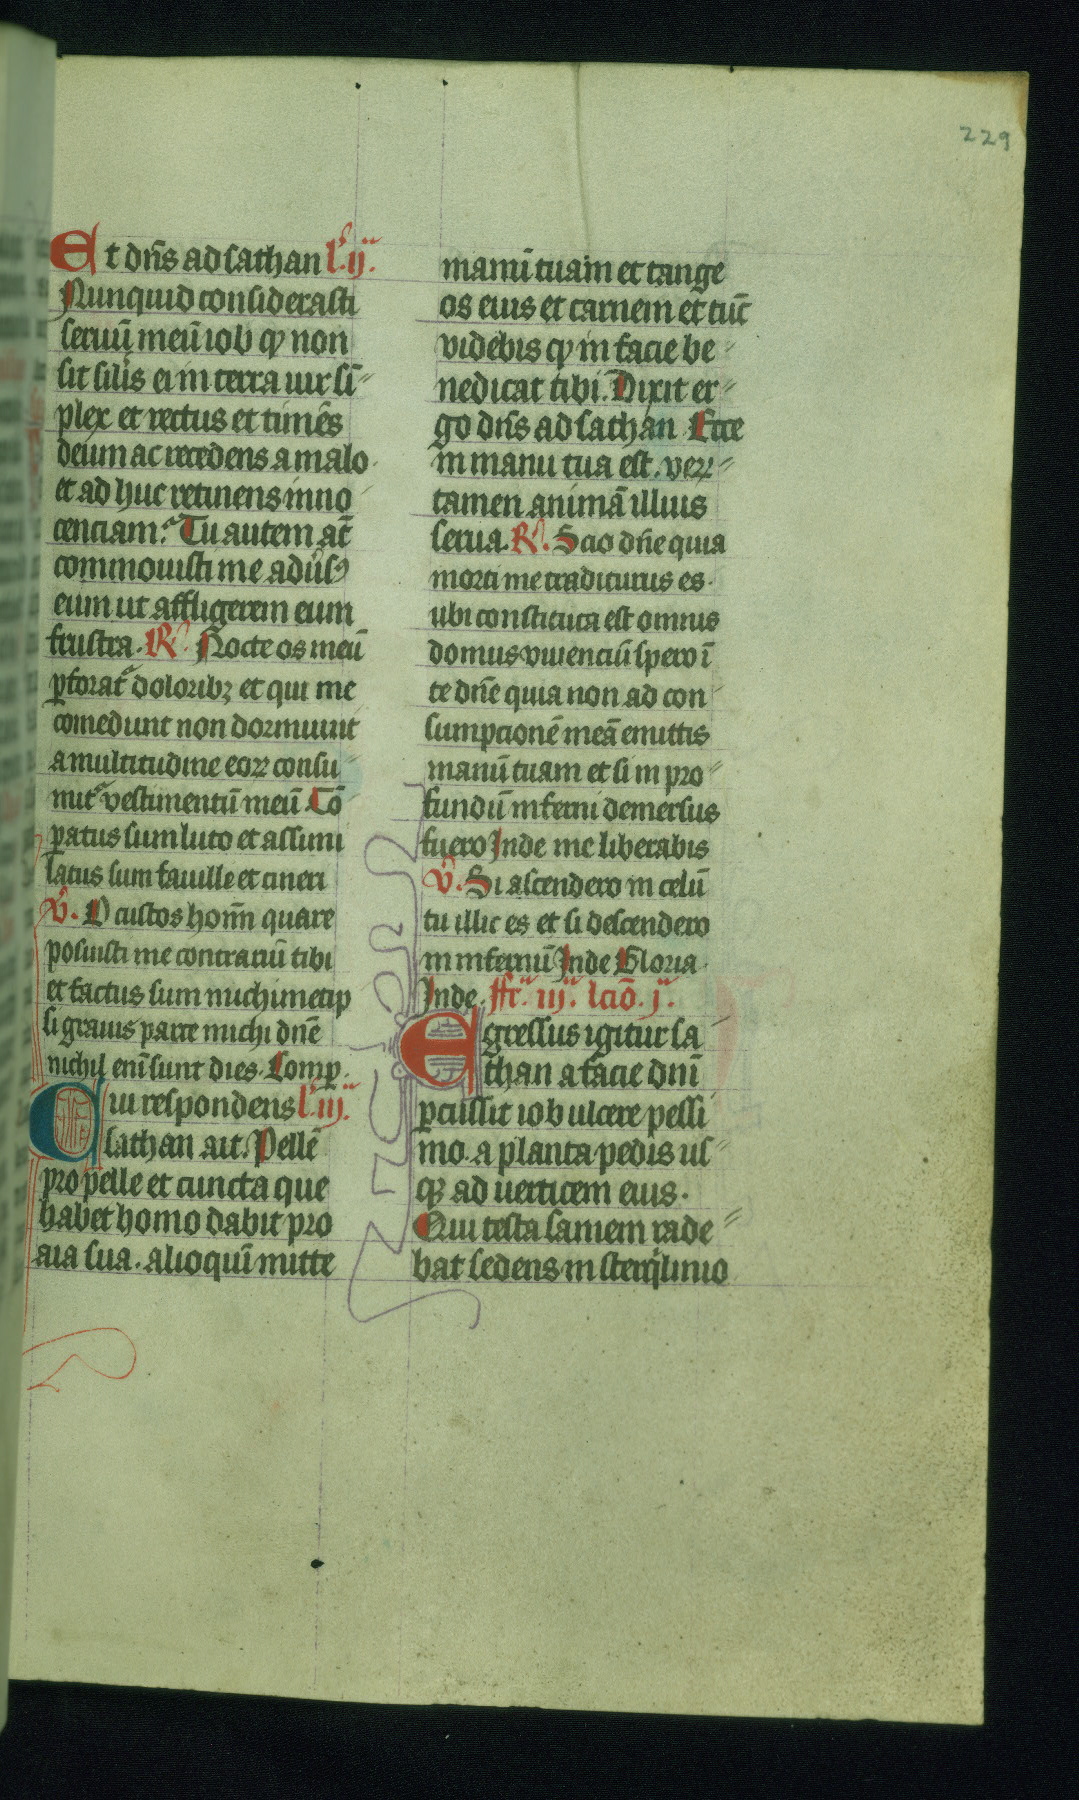 229
Et dn̄s ad sathan l̵. ij.
Nunquid considerasti
seruū meū iob qͥ non
sit sil̄is ei in terra uir sī=
plex et rectus et timēs
deum ac recedens a malo.
et adhuc retinens inno
cenciam. Tu autem at̄
commouisti me adūsꝰ
eum ut affligerem eum
frustra. R̸. Nocte os meū
ꝑforat᷑ doloribꝫ et qui me
comedunt non dormiunt
a multitudine eoꝝ consu=
mit᷑ vestimentū meū Cō
ꝑatus sum luto et assimi
latus sum fauille et cineri
V̄. O custos hom̄ quare
posuisti me contrariū tibi
et factus sum michimetip
si grauis parce michi dn̄e
nichil enī sunt dies. Comꝑ.
Cui respondens l̵. iij.
sathan ait. Pellē
pro pelle et cuncta que
habet homo dabit pro
aīa sua. alioquī mitte
manū tuam et tange
os eius et carnem et tūc
videbis qͥ in facie be=
nedicat tibi. Dixit er=
go dn̄s ad sathan Ecce
in manu tua est. veꝝ=
tamen animā illius
serua. R̸. Scio dn̄e quia
morti me traditurus es.
ubi constituta est omnis
domus viuenciū spero ī
te dn̄e quia non ad con=
sumpcionē meā emittis
manū tuam et si in pro=
fundū inferni demersus
fuero Inde me liberabis
V̄. Si ascendero in celū
tu illic es et si descendero
in infernū Inde Gloria.
Inde. ffr̄. iij. lciō. j.
Egressus igitur sa=
than a facie dnī
ꝑcussit iob ulcere pessi
mo. a planta pedis us=
qꝫ ad uerticem eius.
Qui testa saniem rade=
bat sedens in sterqͥlinio